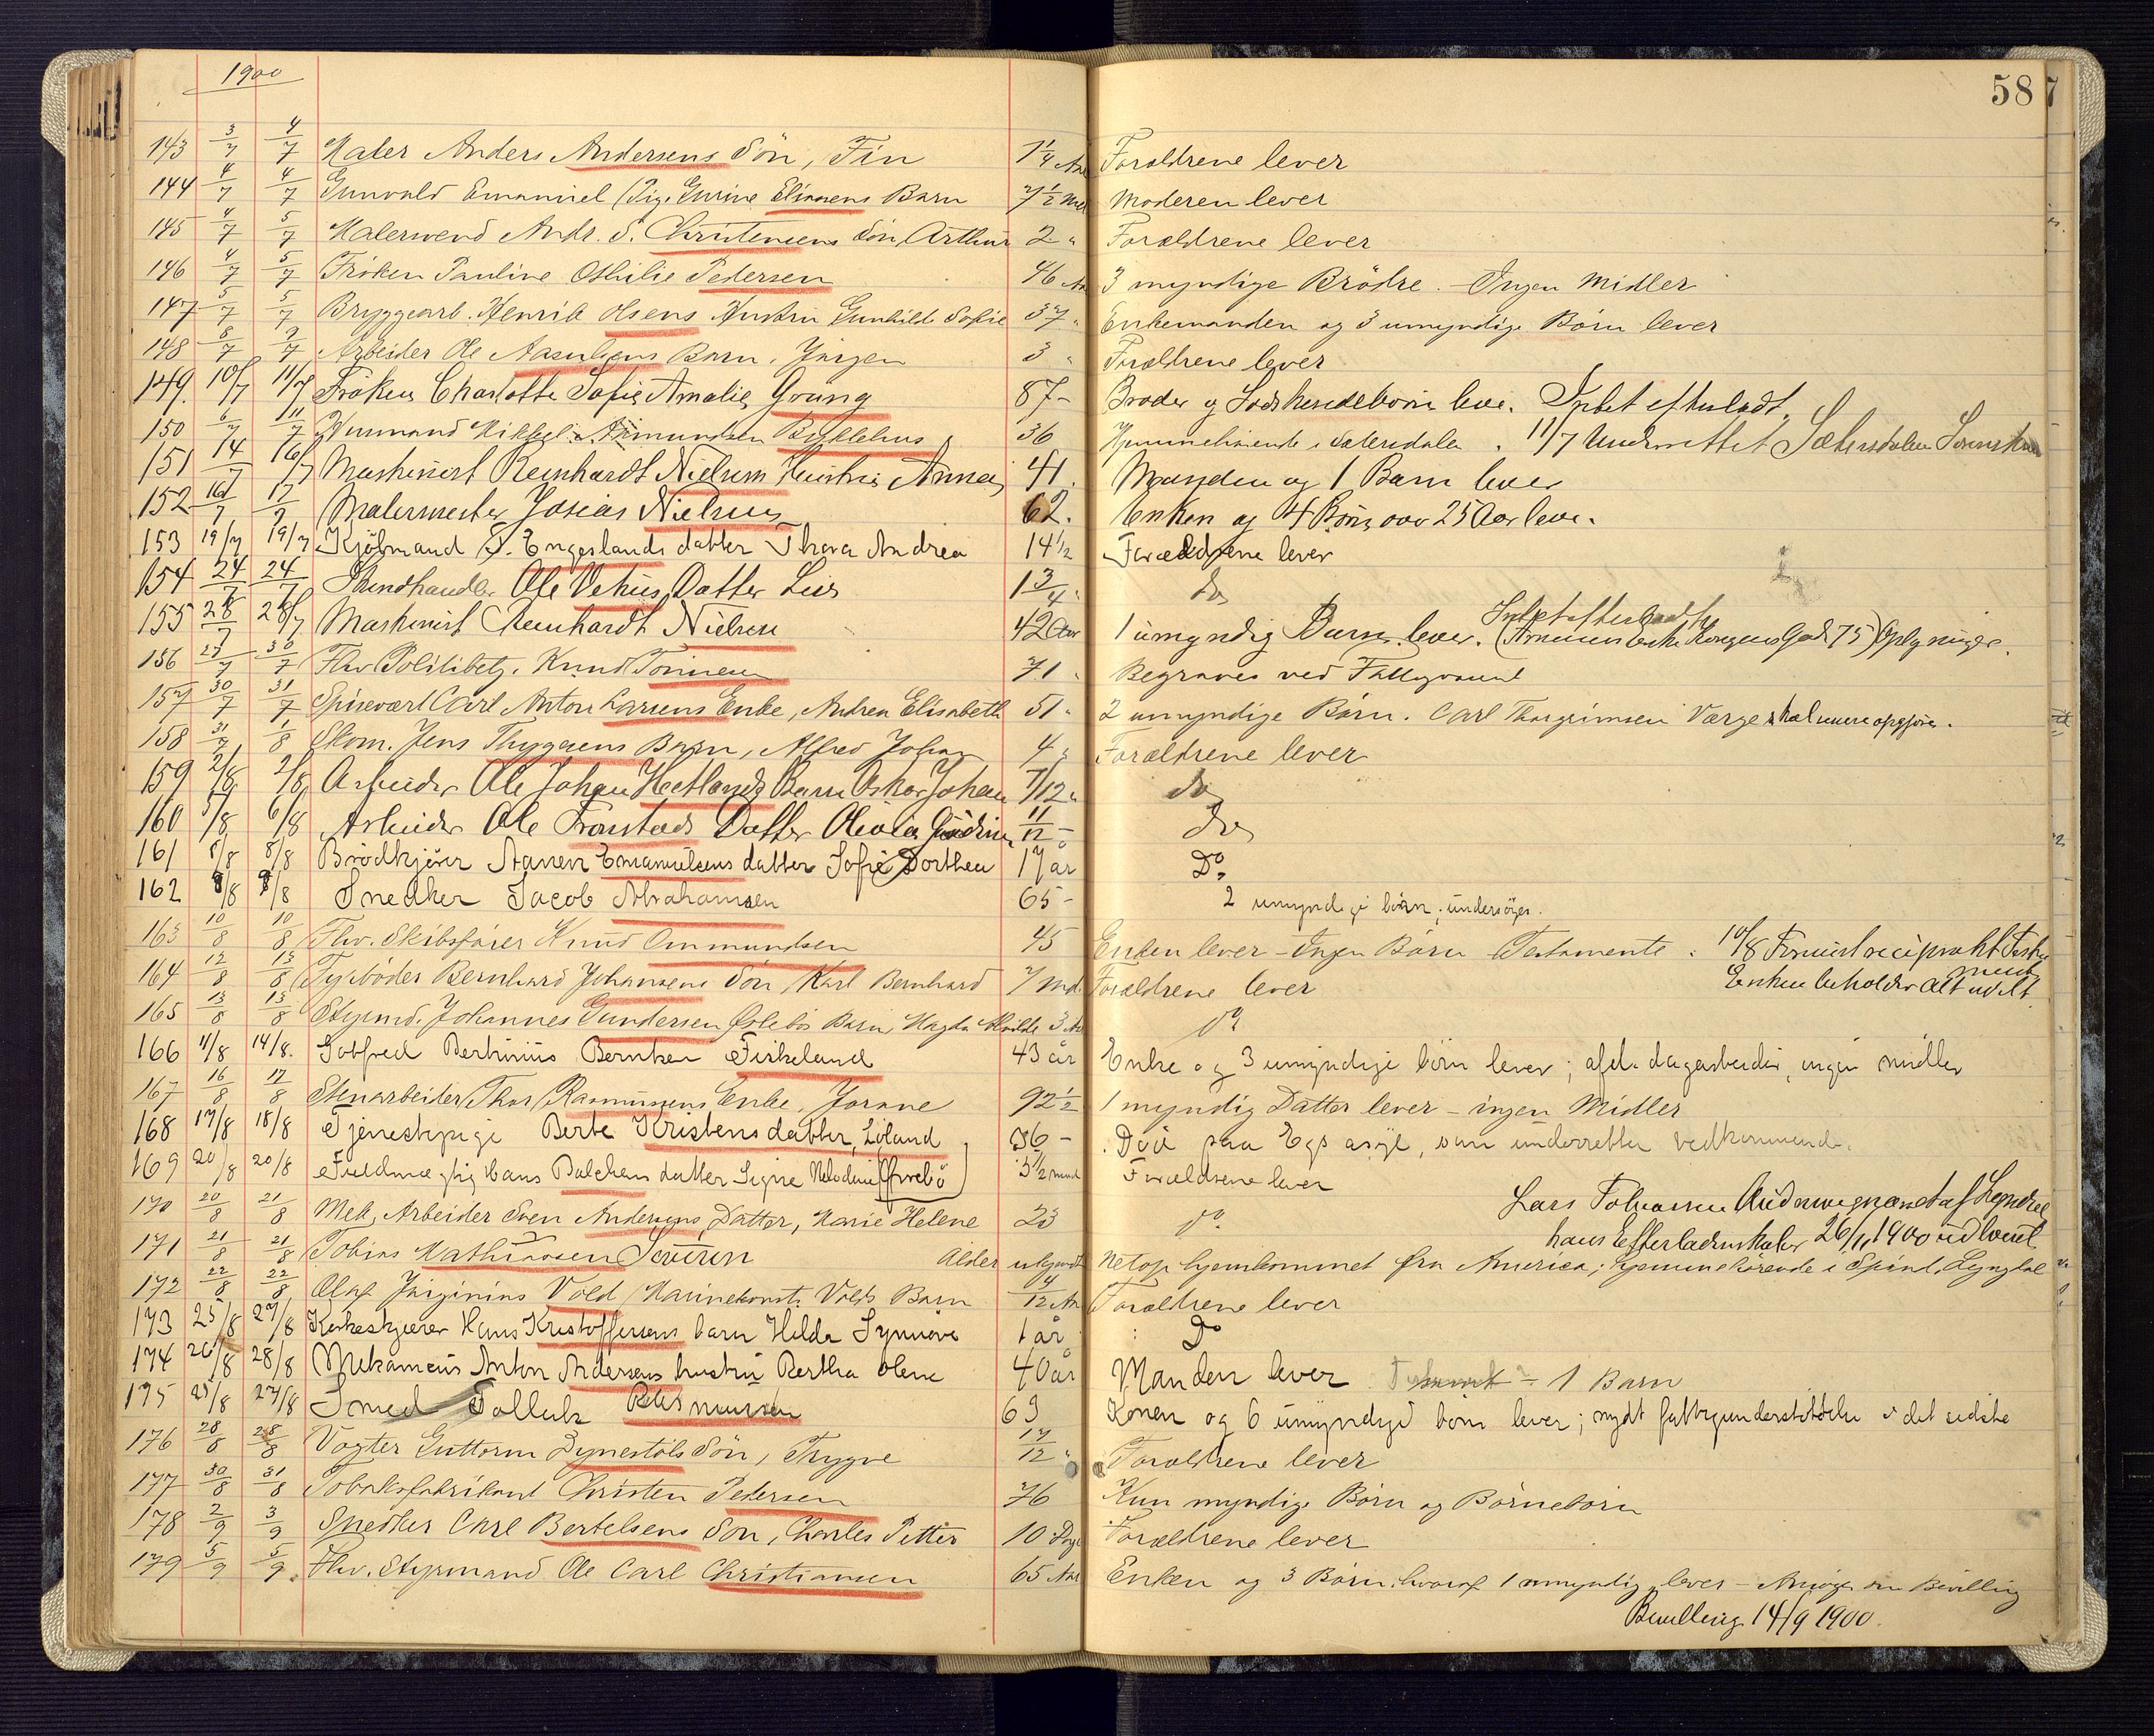 1900
58
143 3/7 4/7 Maler Anders Andersens Sön, Fin 1 1/4 Aar Forældrene lever
144 4/7 4/7 Gunvald Emanuel (Pige Gurine Eliasens Barn 7 1/2 Md Moderen lever
145 4/7 5/7 Malersvend Andr. S. Christensens Sön Arthur 2 " Forældrene lever
146 4/7 5/7 Fröken Pauline Othilie Pedersen 46 Aar 3 myndige Brödre. - Ingen Midler
147 5/7 5/7 Bryggearb. Henrik Olsens Hustru Gunhild Sofie 37 " Enkemanden og 3 umyndige Börn lever
148 8/7 9/7 Arbeider Ole Aasulsens Barn, Jörgen 3 " Forældrene lever
149. 10/7 11/7 Fröken Charlotte Sofie Amalie Göring 87 - Broder og Sødskendebörn leve. Intet efterladt.
150 6/7 11/7 Mikkel Aamundsen Bykkehus 36 Hjemmehörende i Sætersdalen. 11/7 Underrettet Sætersdalen
151 14/7 16/7 Maskinist Reinhardt Nielsens Hustru Anna 41. Manden og 1 Barn lever
152 16/7 17/7 Malermester Josias Nielsen 62. Enken og 4 Börn over 25 Aar leve.
153 19/7 19/7 Kjöbmand T. Engeslands datter Thora Andrea 14 1/2 Forældrene lever
154 24/7 24/7 Skindhandler Ole Vehus Datter Lris 1 3/4 " do
155 28/7 28/7 Maskinist Reinhardt Nielsen 42 Aar 1 umyndig Barn lever. Intet efterladt (Amunds Enke Kongens Gade 75) Oplysninger.
156 29/7 30/7 Fhv Politibetj. Knud Tönnesen 71 " Begraves ved Fattigvæsenet
157 30/7 31/7 Spisevært Carl Anton Larsens Enke, Andrea Elisabeth 51 " 2 umyndige Börn. Carl Thorgrimsen Værge skal opgjöre.
158 31/7 1/8 Skom. Jens Thygesens Barn, Alfred Johan 4 " Forældrene lever
159 2/8 2/8 Arbeider Ole Johan Hetlands Barn Oskar Johan 7/12 " do
160 5/8 6/8 Arbeider Ole Fronstads Datter Olivia Gudrun 11/12 - do
161 8/8 8/8 Brödkjörer Aanen Emanuelsens datter Sofie Dorthea 17 år Do
162 8/8 9/8 Snedker Jacob Abrahamsen 65 - 2 umyndige börn; undersöges.
163 10/8 10/8 Fhv. Skibsförer Knud Ommundsen 45 Enken lever - Ingen Börn Testamente. 10/8 Forevist reciprokt Testa
ment
164 12/8 13/8 Bernhard Johansens Sön, Karl Bernhard 7 Md. Forældrene lever Enken beholder alt udelt.
165 13/8 13/8 Styrmd. Johannes Gundersen Öslebös Barn, Magda Alvilde 3 Aar do
166 11/8 14/8. Gotfred Bertinius Berntsen Fiskeland 43 år Enke og 3 umyndige börn lever; afd. dagarbeider, ingen midler
167 16/8 17/8 Stenarbeider Thor Rasmussens Enke, Jorane 92 1/2 1 myndig Datter lever - ingen Midler
168 17/8 18/8 Tjenestepige Berte Kristensdatter Löland 36 - Död paa Egs asyl, som underretter vedkommende.
169 20/8 20/8 Fuldmægtig Hans Balchens datter Signe 5 1/2 mnd Forældrene lever
170 20/8 21/8 Mek. Arbeider Sven Andersens Datter, Marie Helene 23 do
Lars Tobiassen
171 21/8 21/8 Tobias Mathiassen Alder ubekjendt Netop hjemkommet fra America; hjemmehörende i Spind, Lyngdal
hans Efterladenskaber 26/11 1900 udleveret
172 22/8 22/8 Olaf Jörginius Vold (Marinekonst. Volds Barn 4/12 Aar Forældrene lever
173 25/8 27/8 Hans Kristoffersens barn Hilda Synnöve 1 år Do
174 26/8 28/8 Mekanicus Anton Andersens hustru Bertha Olene 40 år Manden lever - 1 Barn
175 25/8 27/8 Smed Tollak Rasmussen 63 Konen og 6 umyndige börn lever; nydt fattigunderstöttelse i det sidste
176 28/8 28/8 Vogter Guttorm Dynestöls Sön, Trygve 17/12 " Forældrene lever
177 30/8 31/8 Tobaksfabrikant Christen Pedersen 76 Kun myndige Börn og Börnebörn
178 2/9 3/9 Snedker Carl Bertelsens Sön, Charles Petter 10 Dage Forældrene lever
179 5/9 5/9 Fhv. Styrmand Ole Carl Christiansen 65 Aar Enken og 3 Börn, hvoraf 1 umyndig, lever - Ansöge om Bevilling
Bevilling 14/9 1900.